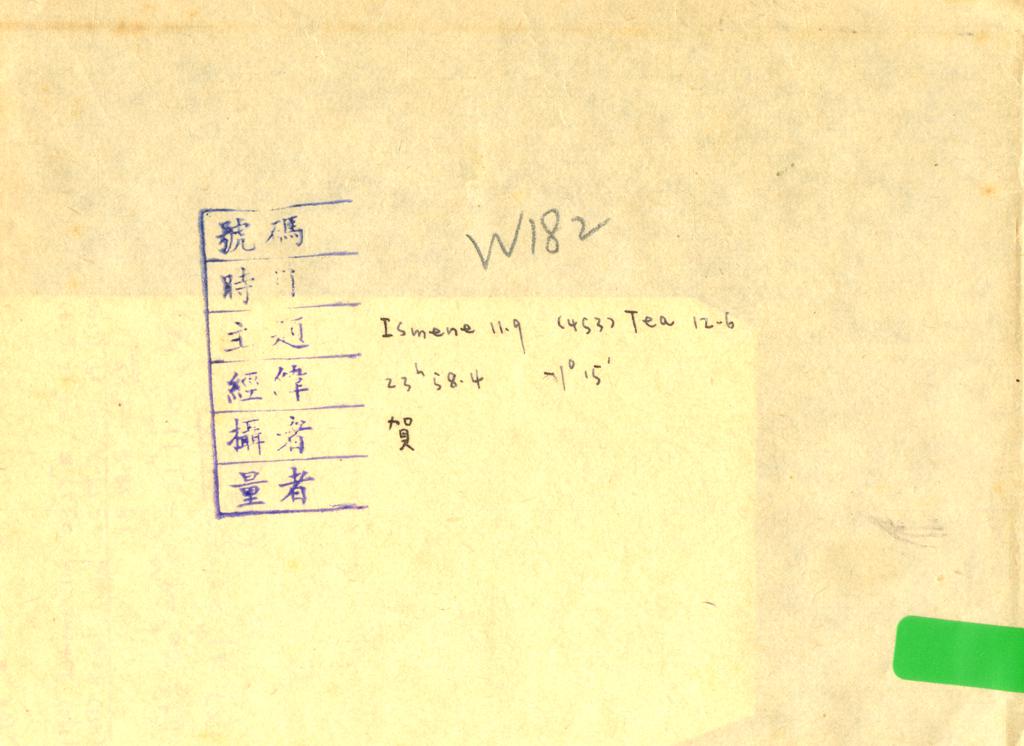 號碼 W182
時日
主題 Ismene 11.9 (453) Tea 12.6
經緯 23ʰ58.4 -1°15'
攝者 賀
量者